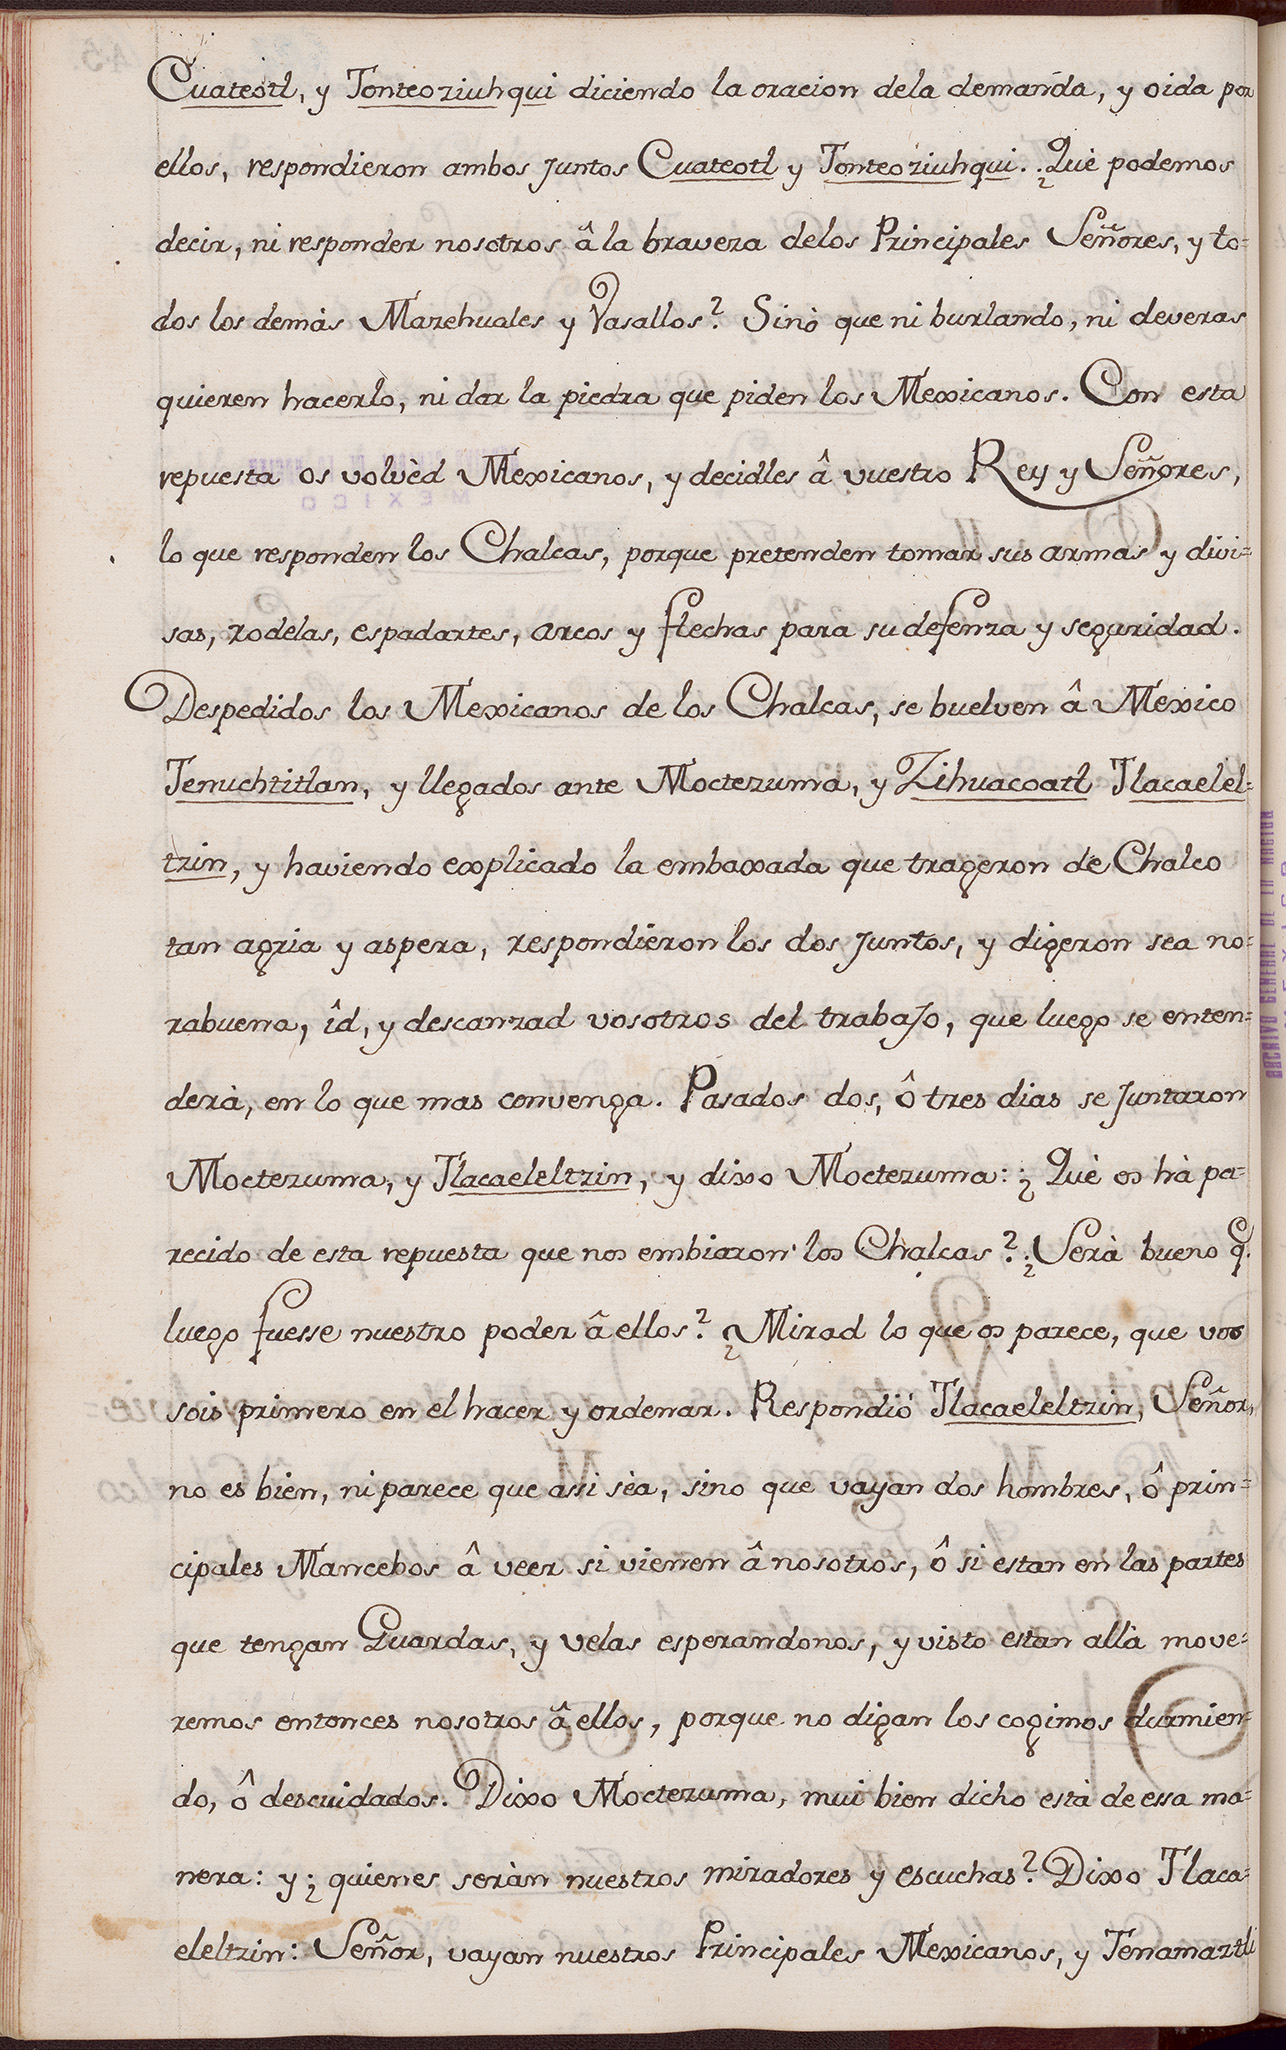 Cuateotl, y Tonteoziuhqui diciendo la oracion dela demanda, y oida por
ellos, respondieron ambos juntos Cuateotl y Tonteoziuhqui. ¿Què podemos
decir, ni responder nosotros â la braveza delos Principales Señores, y to=
dos los demàs Mazehuales y Vasallos? Sinò que ni burlando, ni deveras
quieren hacerlo, ni dar la piedra que piden los Mexicanos. Con esta
repuesta os volvèd Mexicanos, y decidles â vuestro Rey y Señores,
lo que responden los Chalcas, porque pretenden tomar sus armas y divi=
sas, rodelas, espadartes, arcos y flechas para su defenza y seguridad.
Despedidos los Mexicanos de los Chalcas, se buelven â Mexico
Tenuchtitlan, y llegados ante Moctezuma, y Zihuacoatl Tlacaelel=
tzin, y haviendo explicado la embaxada que trageron de Chalco
tan agria y aspera, respondieron los dos juntos, y digeron sea no=
rabuena, îd, y descanzad vosotros del trabajo, que luego se enten=
derà, en lo que mas convenga. Pasados dos, ô tres dias se juntaron
Moctezuma, y Tlacaeleltzin, y dixo Moctezuma: ¿Què os hà pa=
recido de esta repuesta que nos embiaron los Chalcas? ¿Serà bueno q.
luego fuesse nuestro poder â ellos? ¿Mirad lo que os parece, que vos
sois primero en el hacer y ordenar. Respondió Tlacaeleltzin, Señor,
no es bien, ni parece que assi sèa, sino que vayan dos hombres, ô prin=
cipales Mancebos â veer si vienen â nosotros, ô si estan en las partes
que tengan Guardas, y velas esperandonos, y visto estan allà move=
remos entonces nosotros â ellos, porque no digan los cogimos durmien=
do, ô descuidados. Dixo Moctezuma, mui bien dicho està de essa ma=
nera: y ¿quienes seràn nuestros miradores y escuchas? Dixo Tlaca=
eleltzin: Señor, vayan nuestros Principales Mexicanos, y Tenamaztli
ARCHIVO GENERAL DE LA NACION
MEXICO